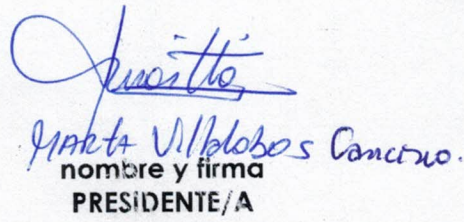 MARTA Villalobos Cancino.
nombre y firma
PRESIDENTE/A